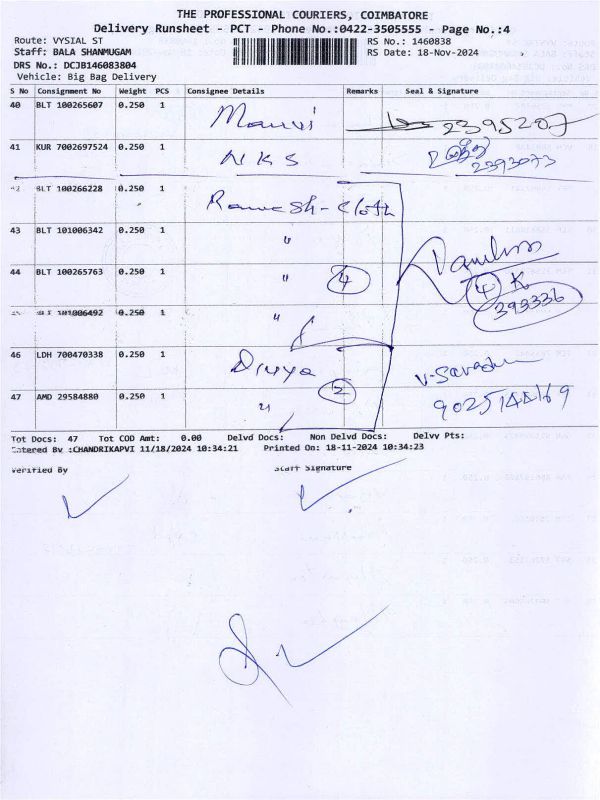 THE PROFESSIONAL COURIERS, COIMBATORE
Delivery Runsheet - PCT - Phone No.:0422-3505555 - Page No.:4
Route: VYSIAL ST RS No.: 1460838
Staff: BALA SHANMUGAM RS Date: 18-Nov-2024
DRS No.: DCJB146083804
Vehicle: Big Bag Delivery
S No Consignment No Weight PCS Consignee Details Remarks Seal & Signature
40 BLT 100265607 0.250 1 2395207
41 KUR 7002697524 0.250 1 NKS 2393073
42 BLT 100266228 0.250 1 Ramesh-cloth
43 BLT 101006342 0.250 1 "
44 BLT 100265763 0.250 1 " 4 4 K
45 BLT 101006492 0.250 1 " 393336
46 LDH 700470338 0.250 1 Divya
47 AMD 29584880 0.250 1 " 2 9025144169
Tot Docs: 47 Tot COD Amt: 0.00 Delvd Docs: Non Delvd Docs: Delvy Pts:
Entered By :CHANDRIKAPVI 11/18/2024 10:34:21 Printed On: 18-11-2024 10:34:23
Verified By Staff Signature